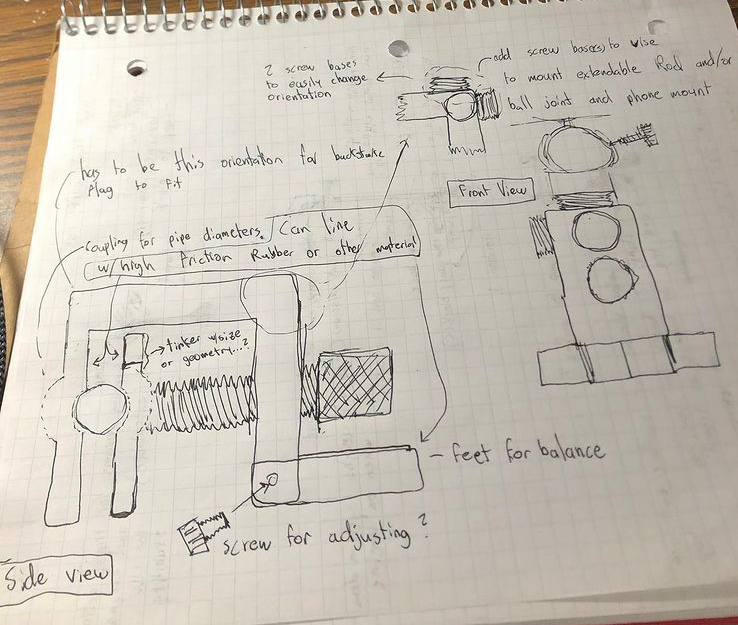 2 screw bases
to easily change
orientation
add screw base(s) to vise
to mount extendable Rod and/or
ball joint and phone mount
Front View
has to be this orientation for backstroke
flag to fit
coupling for pipe diameters. Can line
w/ high friction Rubber or other material
tinker w/size
or geometry...?
feet for balance
screw for adjusting?
Side view